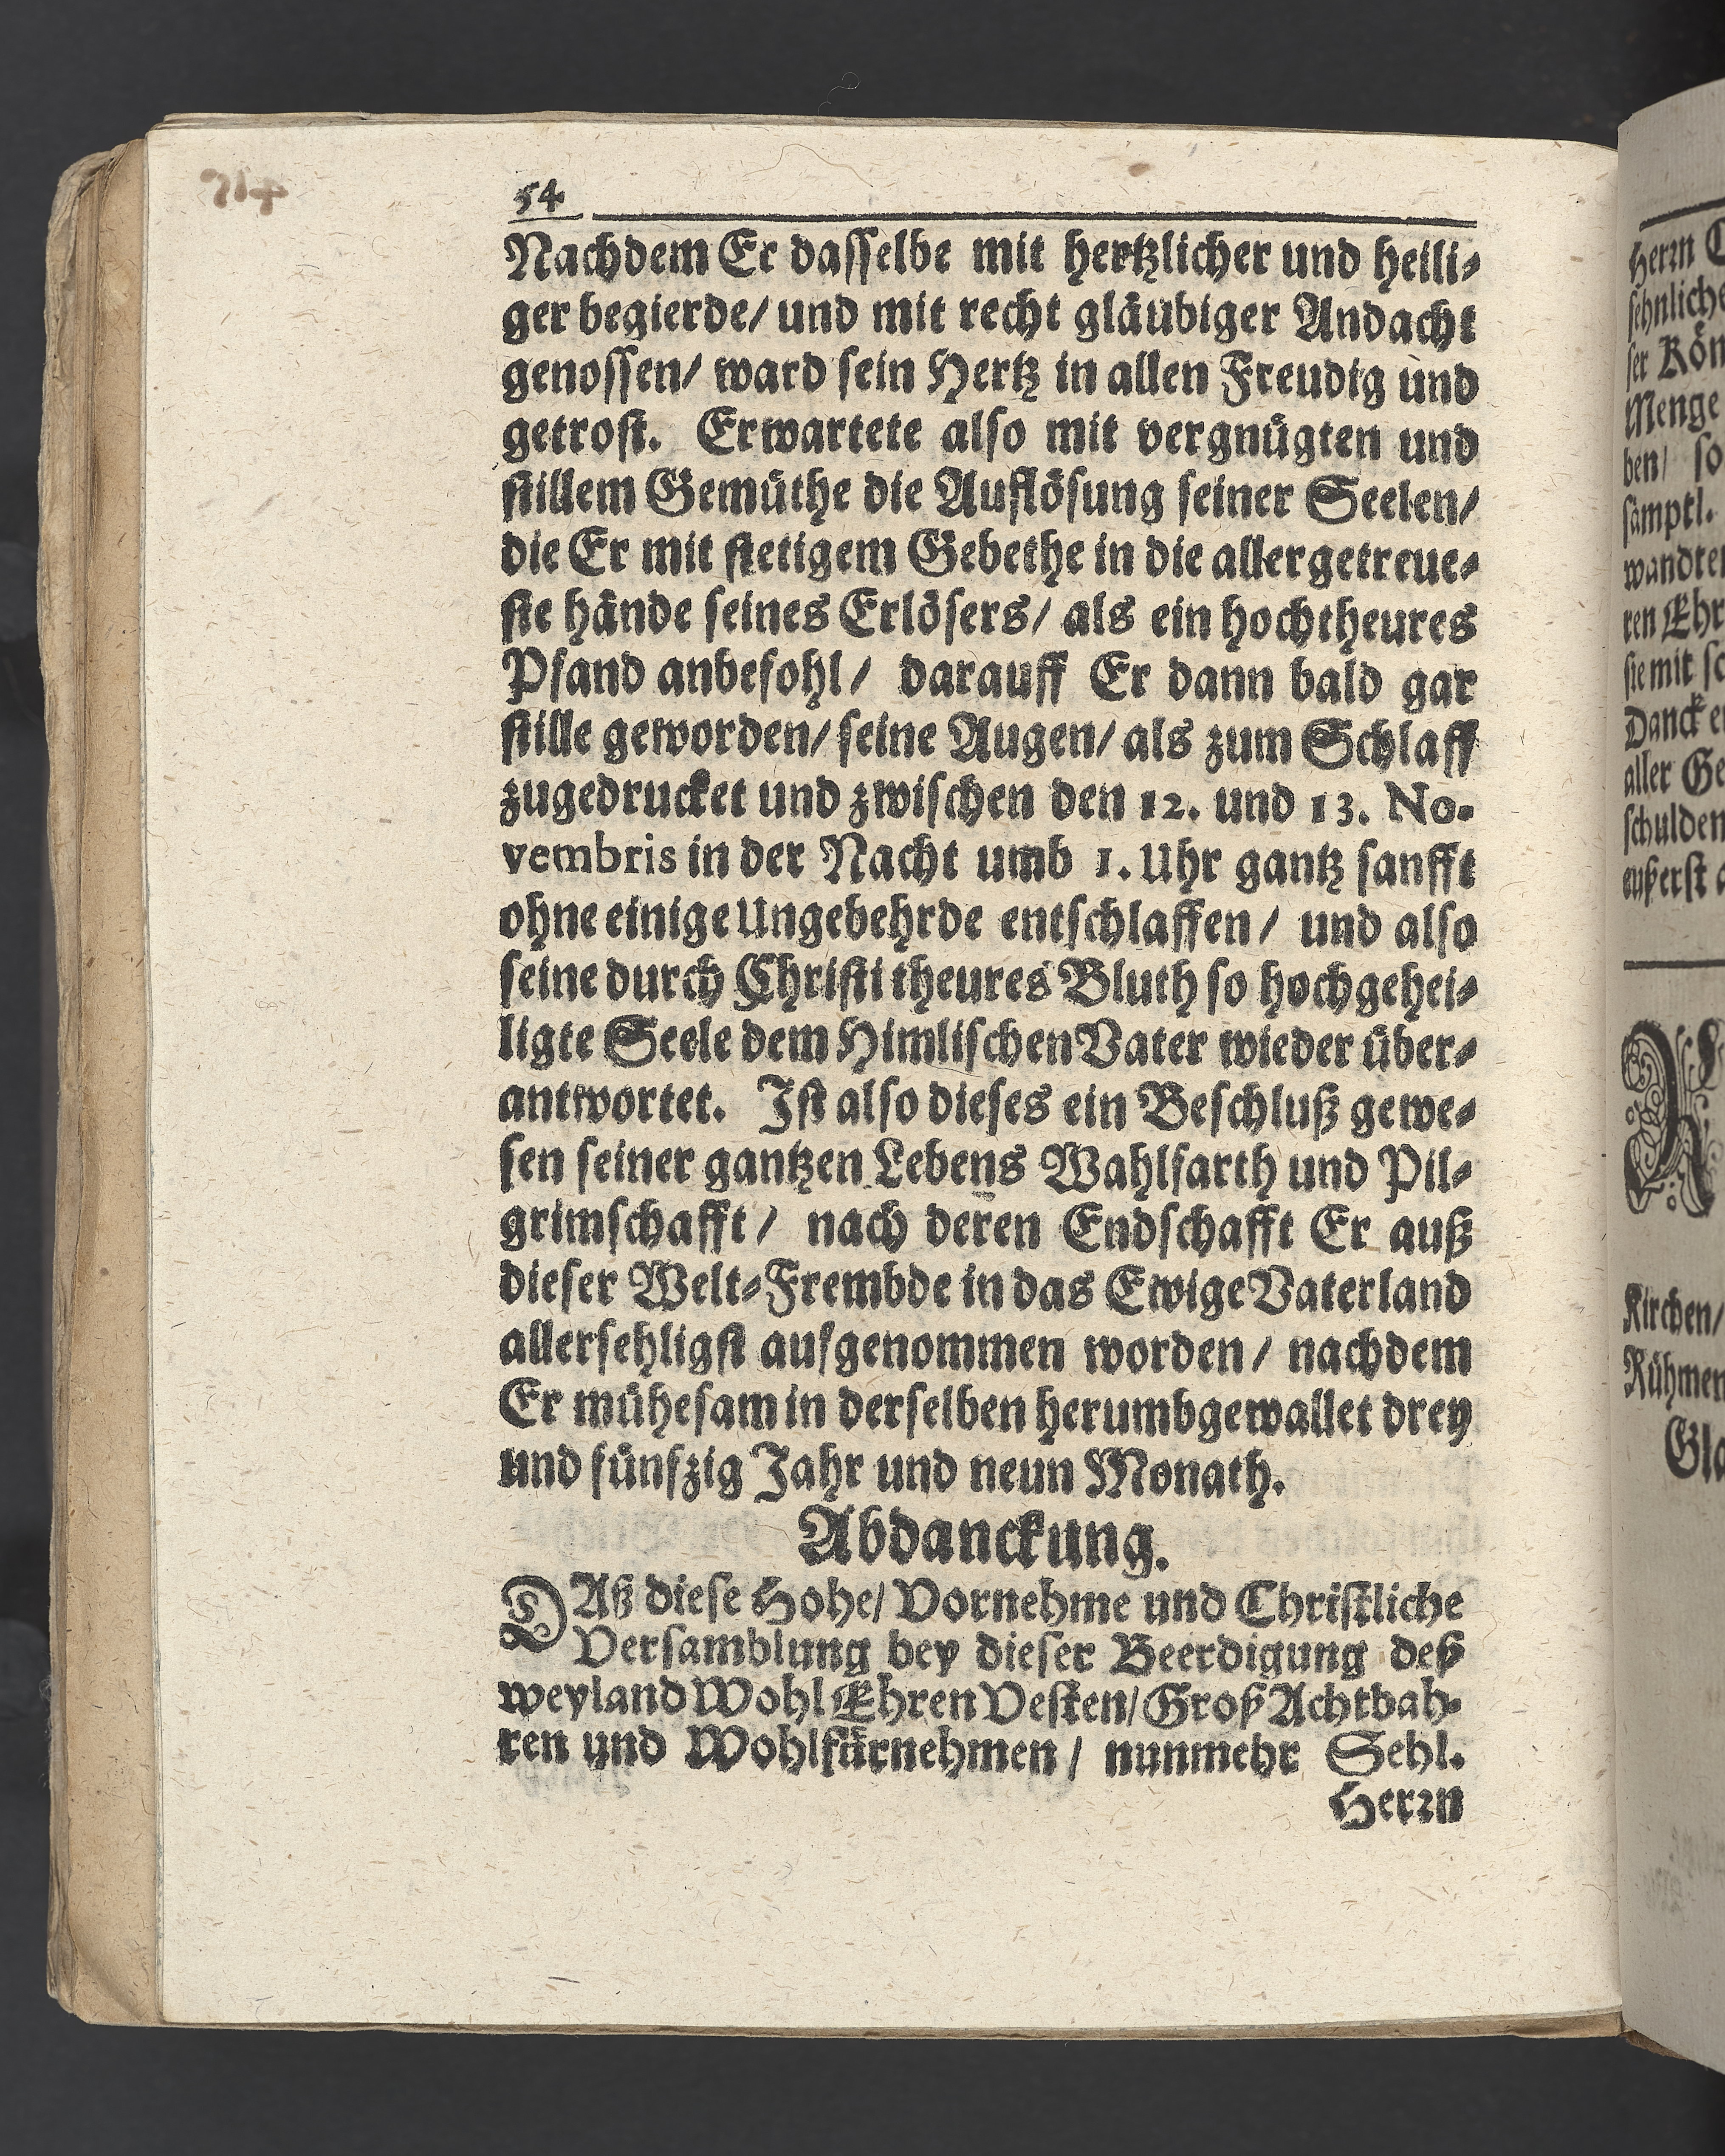 714
54
Nachdem Er dasselbe mit hertzlicher und heili-
ger begierde/ und mit recht gläubiger Andacht
genossen/ ward sein Hertz in allen Freudig und
getrost. Erwartete also mit vergnügten und
stillem Gemüthe die Auflösung seiner Seelen/
die Er mit stetigem Gebethe in die allergetreue-
ste hände seines Erlösers/ als ein hochtheures
Pfand anbefohl/ darauff Er dann bald gar
stille geworden/ seine Augen/ als zum Schlaff
zugedrucket und zwischen den 12. und 13. No-
vembris in der Nacht umb 1. Uhr gantz sanfft
ohne einige Ungebehrde entschlaffen/ und also
seine durch Christi theures Bluth so hochgehei-
ligte Seele dem Himlischen Vater wieder über-
antwortet. Ist also dieses ein Beschluß gewe-
sen seiner gantzen Lebens Wahlfarth und Pil-
grimschafft/ nach deren Endschafft Er auß
dieser Welt-Frembde in das Ewige Vaterland
allersehligst aufgenommen worden/ nachdem
Er mühesam in derselben herumbgewallet drey
und fünfzig Jahr und neun Monath.
Abdanckung.
DAß diese Hohe/ Vornehme und Christliche
Versamblung bey dieser Beerdigung deß
weyland Wohl Ehren Vesten/ Groß Achtbah-
ren und Wohlfürnehmen/ nunmehr Sehl.
Herrn
Herrn
sehnliche
ser Kön
Menge
ben/ so
sämptl.
wandten
ren Ehr
sie mit so
Danck
aller Ge
schulden
eußerst
Kirchen/
Rühmen
Gla